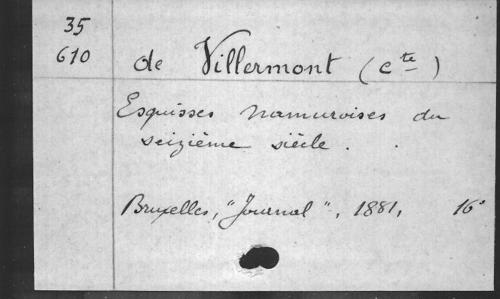 35
610
de Villermont (cte)
Esquisses namuroises du
seizième siècle.
Bruxelles, "Journal", 1881, 16°